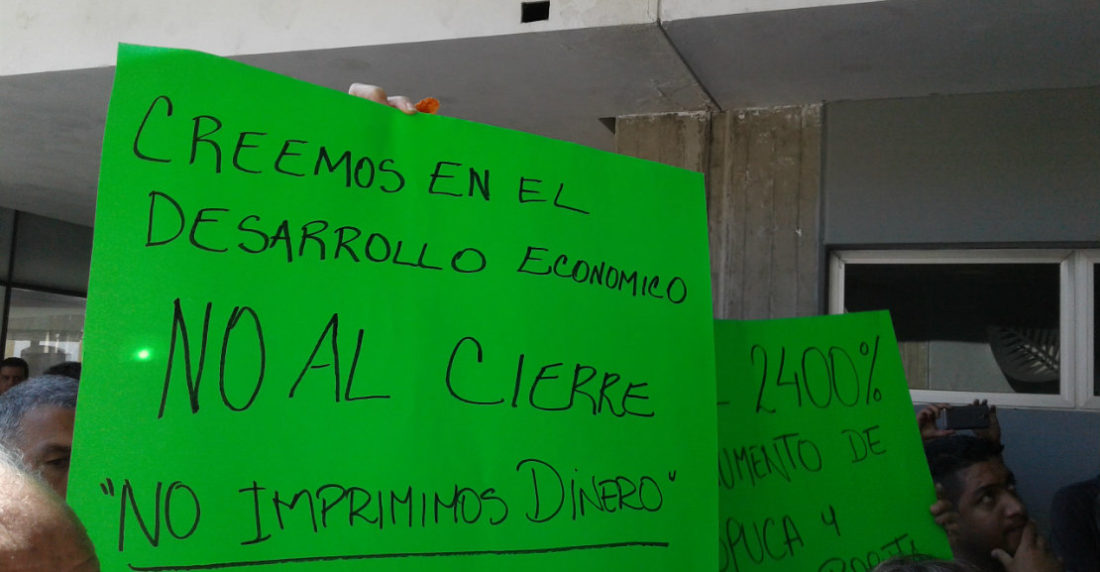 CREEMOS EN EL
DESARROLLO ECONOMICO
NO AL CIERRE
"NO IMPRIMIMOS DINERO"
2400%
UMENTO DE
PUCA Y